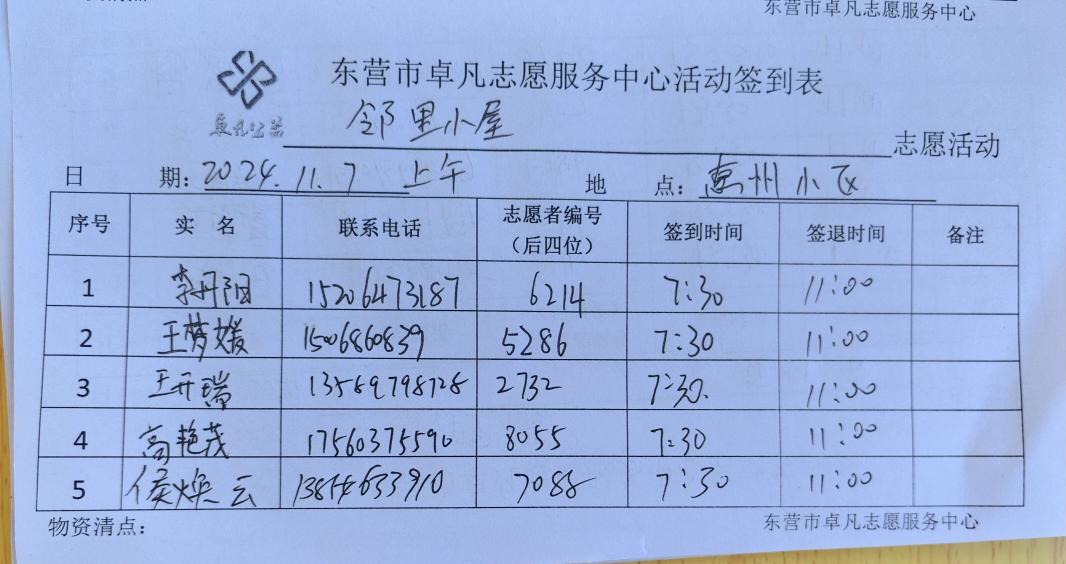 东营市卓凡志愿服务中心
东营市卓凡志愿服务中心活动签到表
卓凡公益
邻里小屋 志愿活动
日 期：2024.11.7 上午 地 点：惠州小区
序号 实 名 联系电话 志愿者编号（后四位） 签到时间 签退时间 备注
1 李丹阳 15206473187 6214 7:30 11:00
2 王梦媛 15006860839 5286 7:30 11:00
3 王开瑞 13589798728 2732 7:30. 11:00
4 高艳茂 17560375590 8055 7:30 11:00
5 侯焕云 13854633910 7088 7:30 11:00
物资清点： 东营市卓凡志愿服务中心